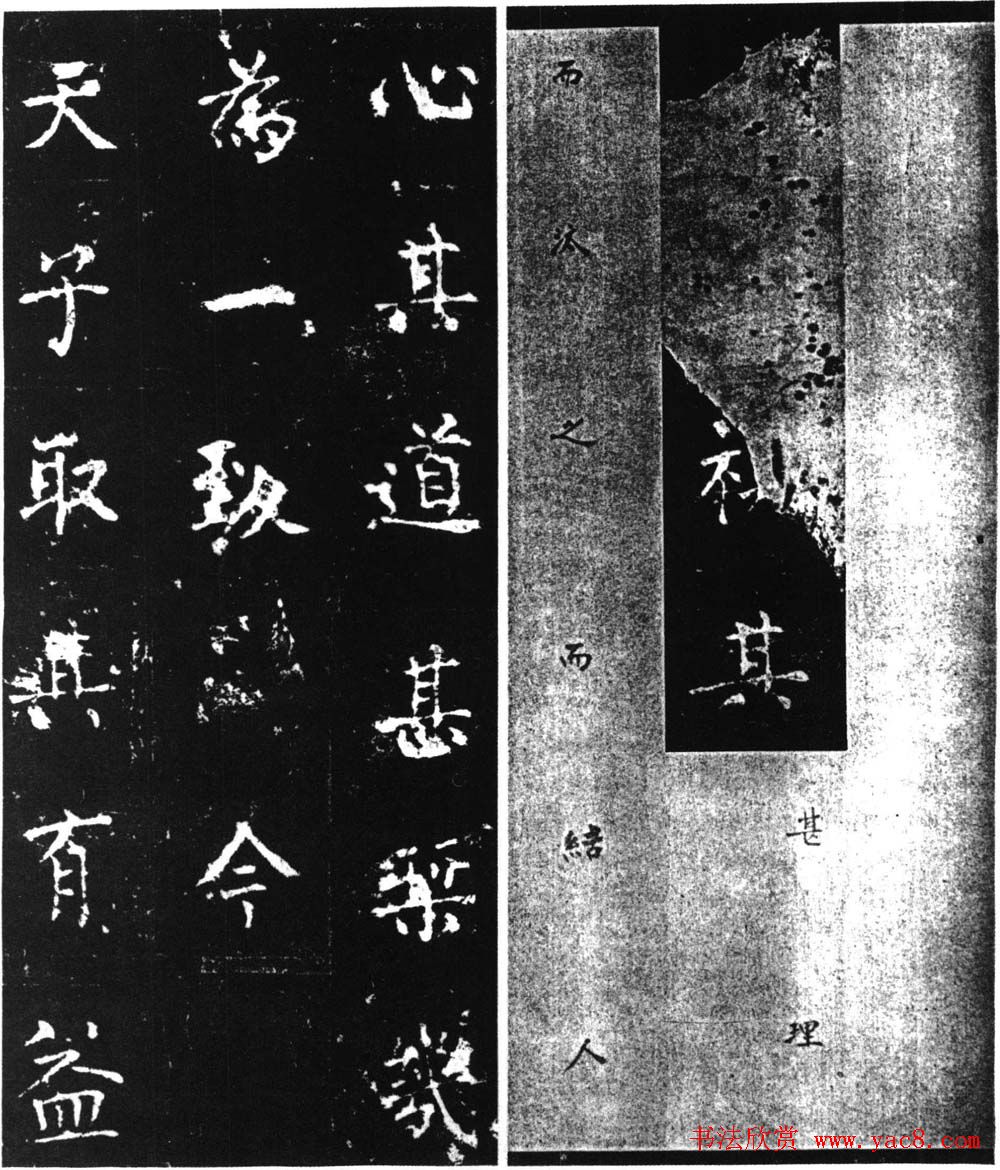 甚理
其
而之而結人
心其道甚幾
為一致今
天子取其有益
书法欣赏 www.yac8.com